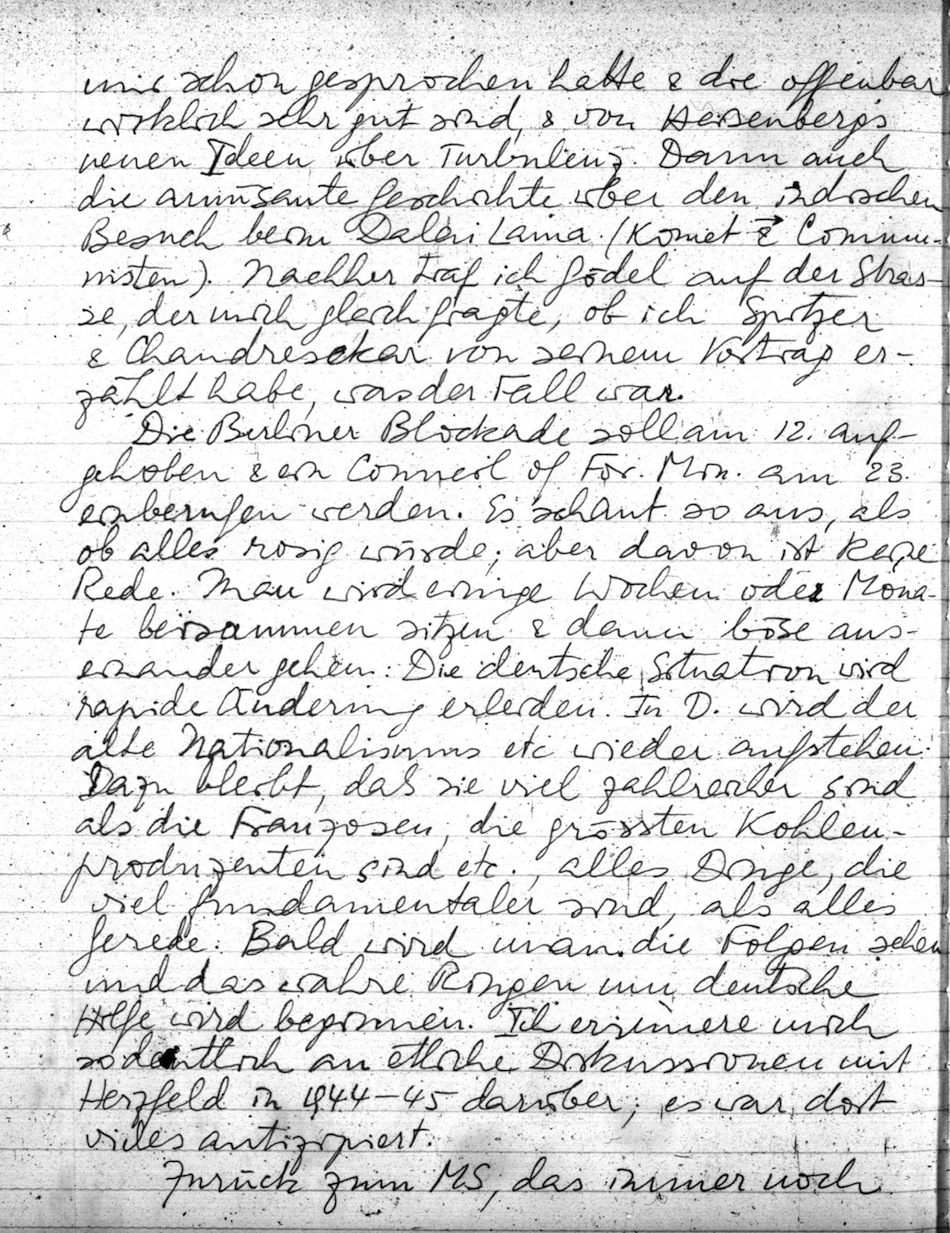 mir schon gesprochen hatte & die offenbar
wirklich sehr gut sind, & von Heisenbergs
neuen Ideen über Turbulenz. Dann auch
die amüsante Geschichte über den indischen
Besuch beim Dalai Lama. (Komet → & Commu-
nisten). Nachher traf ich Gödel auf der Stras-
se, der mich gleich fragte, ob ich Spitzer
& Chandresekar von seinem Vortrag er-
zählt habe, was der Fall war.
Die Berliner Blockade soll am 12. auf-
gehoben & ein Conneil of For. Min. am 23.
einberufen werden. Es schaut so aus, als
ob alles rosig würde; aber davon ist keine
Rede. Man wird einige Wochen oder Mona-
te beisammen sitzen & dann böse aus-
einander gehen. Die deutsche Situation wird
rapide Änderung erleiden. In D. wird der
alte Nationalismus etc wieder aufstehen.
Dazu bleibt, daß sie viel zahlreicher sind
als die Franzosen, die grössten Kohlen-
produzenten sind etc., alles Dinge, die
viel fundamentaler sind, als alles
Gerede. Bald wird man die Folgen sehen
und das wahre Ringen um deutsche
Hilfe wird beginnen. Ich erinnere mich
so deutlich an etliche Diskussionen mit
Herzfeld in 1944–45 darüber; es war dort
vieles antizipiert.
Zurück zum MS, das immer noch